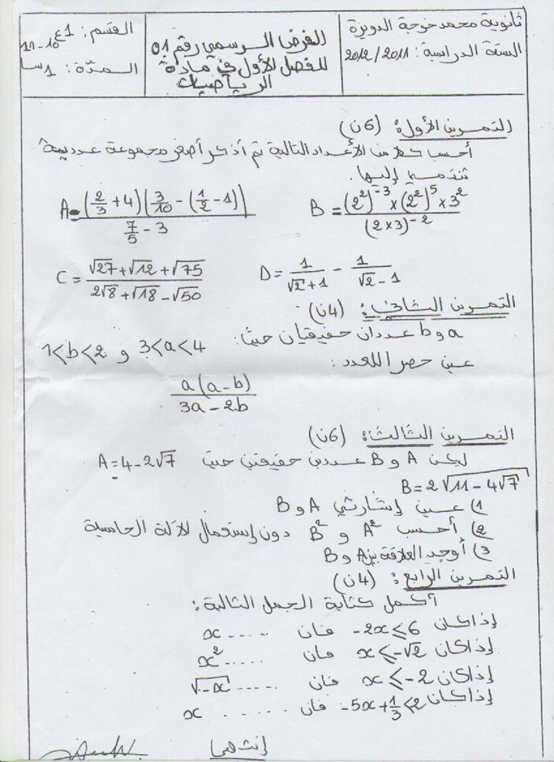 ثانوية محمد خوجة الدويرة
السنة الدراسية : 2011 / 2012
الفرض الرسمي رقم 01
للفصل الأول في مادة
الرياضيات
القسم : 1ع
المدّة : 1 سا
التمرين الأول : (6ن)
أحسب كلا من الأعداد التالية ثم أذكر أصغر مجموعة عددية
تنتمي إليها.
A = ((2/3 + 4)(3/10 - (1/2 - 1))) / (7/5 - 3)
B = ((2²)⁻³ × (2²)⁵ × 3²) / (2×3)⁻²
C = (√27 + √12 + √75) / (2√8 + √18 - √50)
D = 1/(√2 + 1) - 1/(√2 - 1)
التمرين الثاني : (4ن)
a و b عددان حقيقيان حيث :
3<a<4 و 1<b<2
عين حصر للعدد :
a(a-b) / (3a - 2b)
التمرين الثالث : (6ن)
ليكن A و B عددين حقيقين حيث A = 4 - 2√7
B = 2√(11 - 4√7)
1) عين إشارتي A و B
2) أحسب A² و B² دون إستعمال للآلة الحاسبة
3) أوجد العلاقة بين A و B
التمرين الرابع : (4ن)
أكمل كتابة الجمل التالية :
إذا كان -2x ⩽ 6 فان ..... x
إذا كان x ⩽ -√2 فان ..... x²
إذا كان x ⩽ -2 فان ..... √-x
إذا كان -5x + 1/3 < 2 فان ..... x
إنتهى